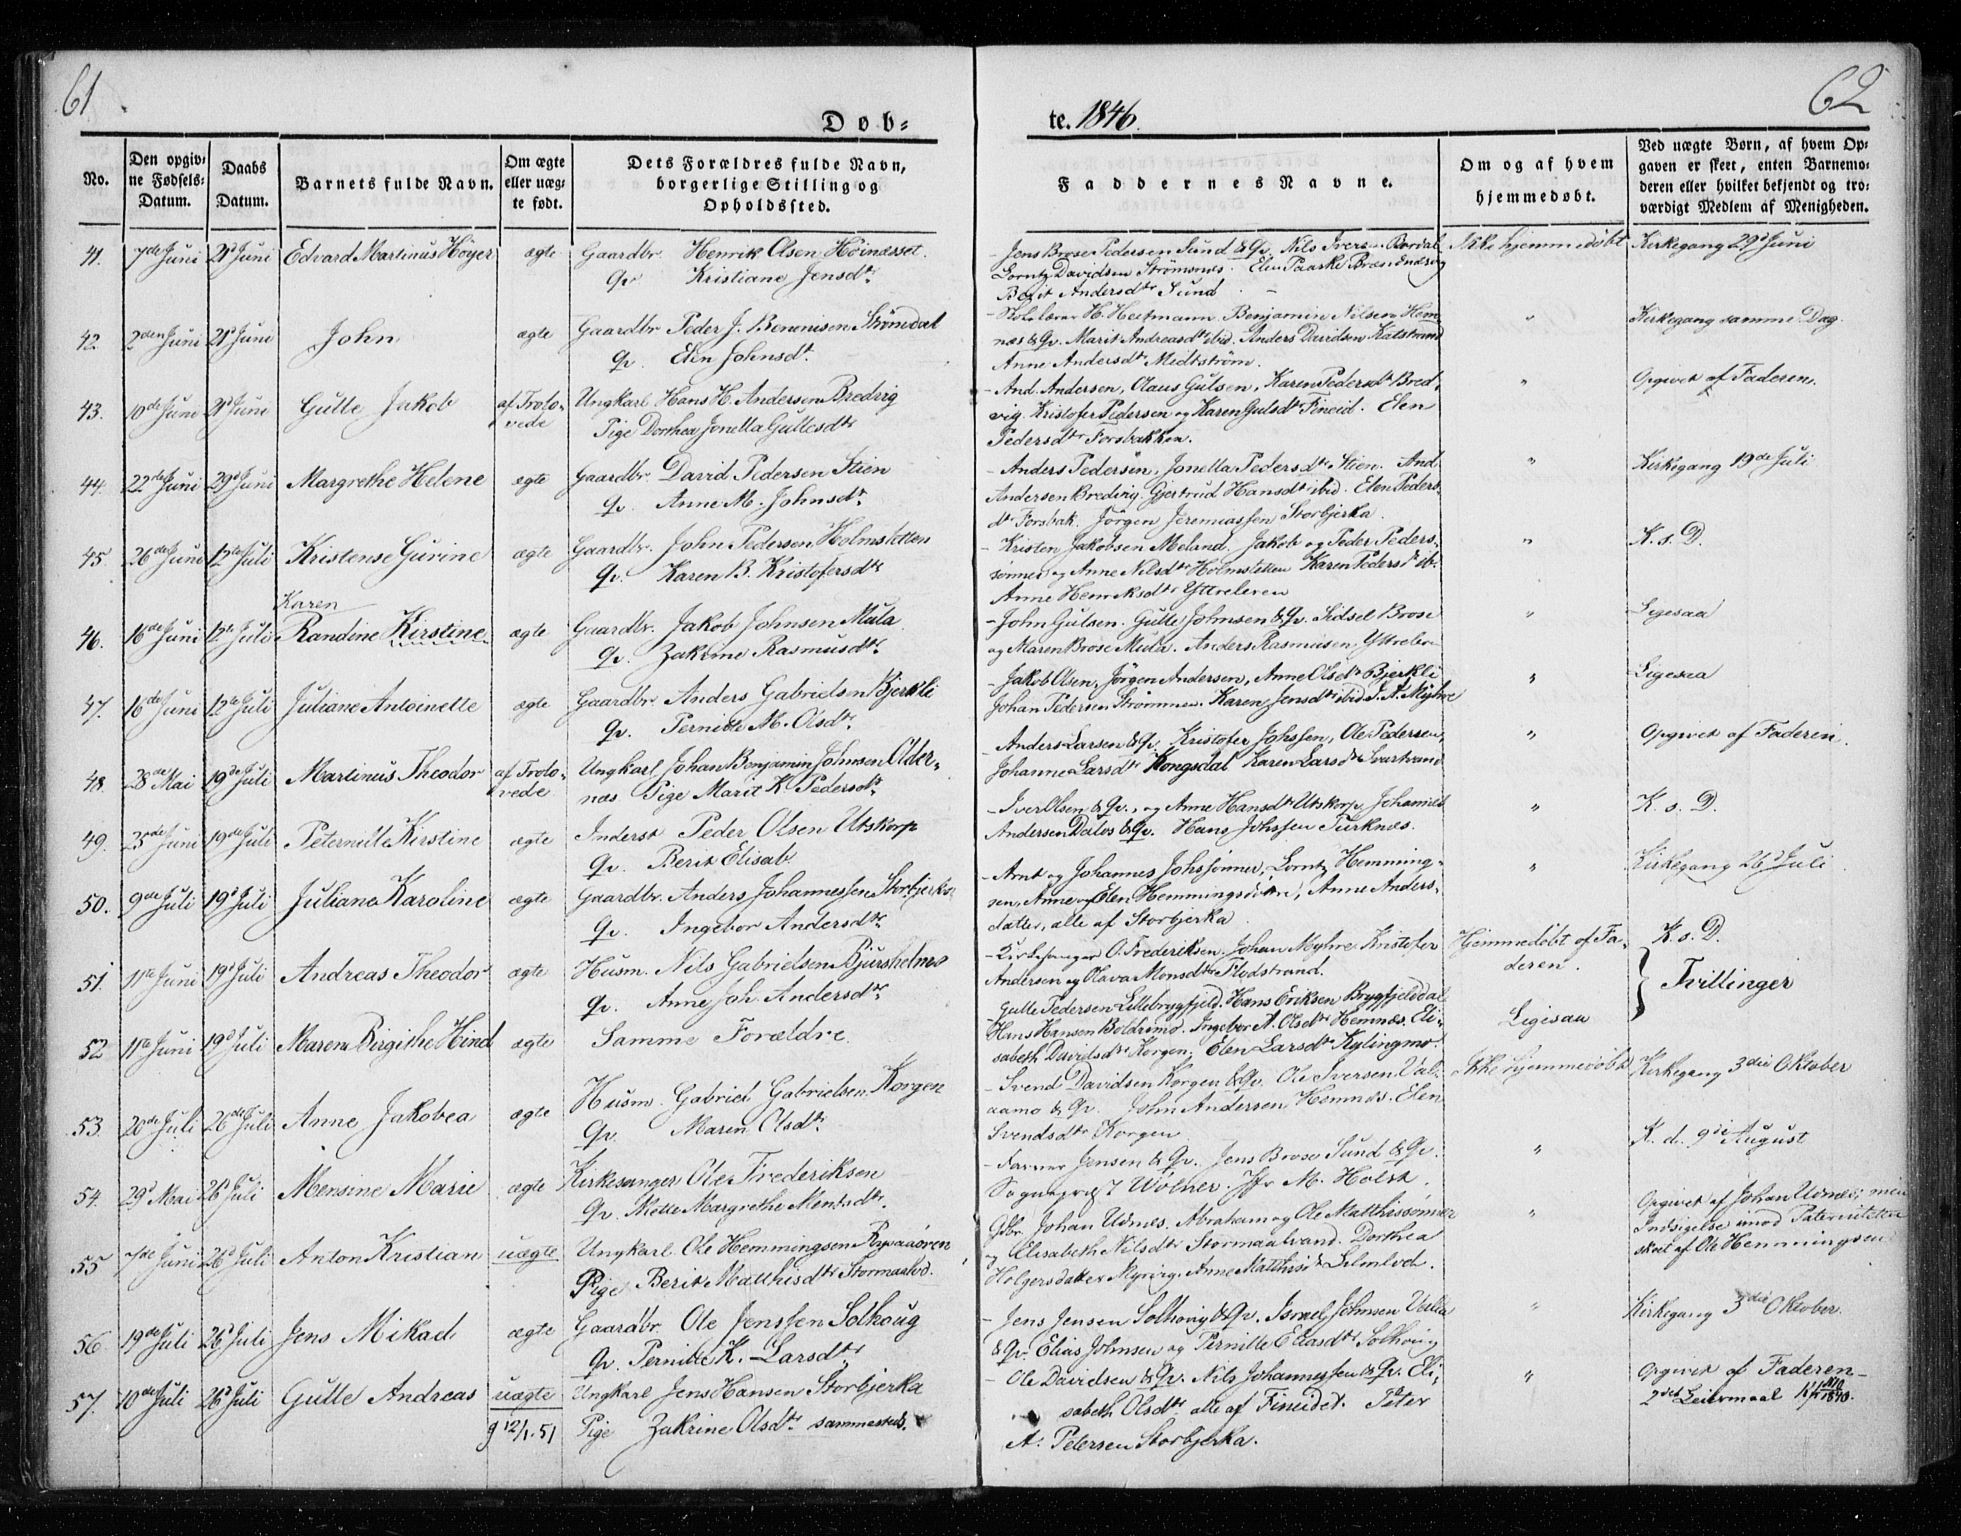 61
62
Døb-
te. 1846.
No.
Den opgiv-
ne Fødsels-
Datum.
Daabs
Datum.
Barnets fulde Navn.
Om ægte
eller uæg-
te født.
Dets Forældres fulde Navn,
borgerlige Stilling og
Opholdssted.
Faddernes Navne.
Om og af hvem
hjemmedøbt.
Ved uægte Børn, af hvem Op-
gaven er skeet, enten Barnemo-
deren eller hvilket bekjendt og tro-
værdigt Medlem af Menigheden.
41. 7de Juni 21d Juni Edvard Martinus Høyer ægte
Gaardbr. Henrik Olsen Höinæsset.
Qv. Kristiane Jensdtr.
- Jens Brose Pedersen Sund & Qv. Nils Iversen
Lorntz Davidsen Strømsnes. Elen Paaske
Berit Andersdtr Sund
Ikke hjemmedøbt
Kirkegang 29d Juni
42. 2den Juni 21d Juni John ægte
Gaardbr. Peder J. Benonisen Strømdal
Qv. Elen Johnsdtr.
- H. Heitmann. Benjamin Nilsen Hem-
næs & Qv. Marit Andreasdtr ibid. Anders Davidsen
Anne Andersdtr Midtstrøm.
"
Kirkegang samme Dag.
43. 10de Juni 21d Juni Gulle Jakob af Trolo-
vede
Ungkarl Hans H. Andersen Bredvig
Pige Dorthea Jonella Gullesdtr
- And. Andersen, Olaus Gulsen, Karen Pedersdtr Bred-
vig. Kristofer Pedersen og Karen Gulsdtr Fineid. Elen
Pedersdtr Forsbakken.
"
Opgivet af Faderen.
44. 22de Juni 29d Juni Margrethe Helene ægte
Gaardbr. David Pedersen Stien
Qv. Anne M. Johnsdtr.
- Anders Pedersen, Jonella Pedersdtr Stien. And.
Andersen Bredvig. Gjertrud Hansdtr ibid. Elen Peders-
dtr Forsbak. Jörgen Jeremiassen Storbjerka.
"
Kirkegang 19de Juli
45 26de Juni 12te Juli Kristense Gurine ægte
Gaardbr. John Pedersen Holmsletten
Qv. Karen B. Kristofersdtr
- Kristen Jakobsen Meland. Jakob og Peder Peders-
sønner og Anne Nilsdtr Holmsletten Karen Pedersdtr ib.
Anne Henriksdtr Yttreleren
"
K. s. D.
Karen
46. 16de Juni 12te Juli Randine Kirstine ægte
Gaardbr. Jakob Johnsen Mula
Qv. Zakrine Rasmusdtr.
- John Gulsen. Gulle Johnsen & Qv. Sidsel Brose
og Maren Brose Mula. Anders Rasmusen Yttreleren
"
Ligesaa
47. 16de Juni 12te Juli Juliane Antoinette ægte
Gaardbr. Anders Gabrielsen Bjerkli
Qv. Pernille M. Olsdtr.
- Jakob Olsen, Jörgen Andersen, Anne Olsdtr Bjerkli
Johan Pedersen Strømmen. Karen Jensdtr ibid. J. A. Myhre
"
Ligesaa
48. 28de Mai 19de Juli Martinus Theodor af Trolo-
vede
Ungkarl Johan Benjamin Johnsen Older-
næs Pige Marit K. Pedersdtr.
- Anders Larsen & Qv. Kristofer Johssen, Ole Pedersen,
Johanne Larsdtr Kongsdal Karen Larsdtr Svartvand
"
Opgivet af Faderen.
49. 25de Juni 19de Juli Peternille Kirstine ægte
Inderst Peder Olsen Utskorp
Qv. Berit Elisab.
- Iver Olsen & Qv., og Anne Hansdtr Utskorp. Johannes
Andersen Dalos & Qv. Hans Johssen Turknæs.
"
K. s. D.
50. 9de Juli 19d Juli Juliana Karoline ægte
Gaardbr. Anders Johannessen Storbjerka
Qv. Ingebor Andersdtr
- Arnt og Johannes Johssønner, Lorntz Hemming-
sen, Anne og Elen Hemmingsdøtre, Anne Anders-
datter, alle af Storbjerka.
"
Kirkegang 26d Juli
51. 11te Juni 19d Juli Andreas Theodor ægte
Husm. Nils Gabrielsen Bjurshelmo
Qv. Anne Joh. Andersdtr.
- Kirkesanger O. Frederiksen, Johan Myhre. Kristofer
Andersen og Olava Monsdtr Flodstrand.
Hjemmedøbt af Fa-
deren.
K. s. D.
Tvillinger
52 11te Juni 19d Juli Maren Birgithe Hind ægte
Samme Forældre.
- Gulle Pedersen Lillebrygfjeld. Hans Eriksen Brygfjeldal
Hans Hansen Boldremo. Ingebor A. Olsdtr Hemnæs. Eli-
sabeth Davidsdtr Korgen; Elen Larsdtr Kylingmo.
Ligesaa
53. 20de Juli 26de Juli Anne Jakobea ægte
Husm. Gabriel Gabrielsen Korgen
Qv. Maren Olsdtr.
- Svend Davidsen Korgen & Qv. Ole Iversen Val-
aamo & Qv. John Andersen Hemnæs. Elen
Svendsdtr Korgen
Ikke hjemmedøbt
Kirkegang 3die Oktober
54. 29d Mai 26d Juli Mensine Marie ægte
Kirkesanger Ole Frederiksen
Qv. Mette Margrethe Mentsdtr.
- Farver Jensen & Qv. Jens Brose Sund & Qv.
Sogneprest Wolner. Jfr M. Holst.
"
K. d. 9de August
55 7de Juni 26d Juli Anton Kristian uægte
Ungkarl Ole Hemmingsen Ryvaaøren
Pige Berit Matthisdtr Stormaalvd.
Gdbr. Johan Udnes. Abraham og Ole Matthissønner
og Elisabeth Nilsdtr Stormaalvand. Dorthea
Holgersdatter Myrvig. Anne Matthisdtr
"
Opgivet af Johan Udnes; men
Indsigelse imod Paterniteten
skeet af Ole Hemmingsen
56. 19de Juli 26d Juli Jens Mikael ægte
Gaardbr. Ole Jenssen Solhoug
Qv. Pernille K. Larsdtr.
- Jens Jensen Solhoug & Qv. Israel Johnsen
& Qv. Elias Johnsen og Pernille Eliasdtr Solhoug
"
Kirkegang 3die Oktober.
57. 10de Juli 26d Juli Gulle Andreas uægte
g 12/1. 51
Ungkarl Jens Hansen Storbjerka
Pige Zakrine Olsdtr. sammesteds.
- Ole Davidsen & Qv. Nils Johannessen & Qv. Eli-
sabeth Olsdtr. alle af Fineidet. Peter
A. Petersen Storbjerka.
"
Opgivet af Faderen
2det Leiermaal